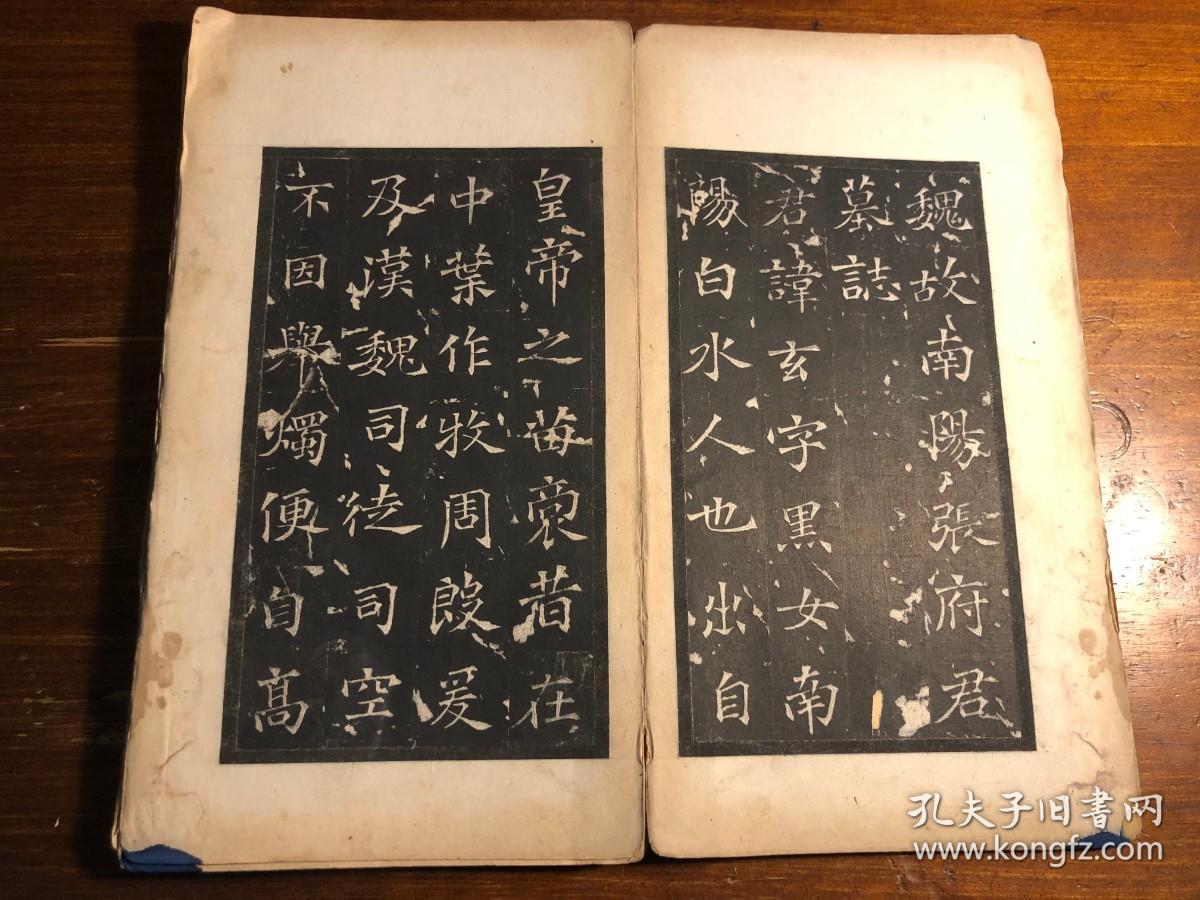 魏故南陽張府君
墓誌
君諱玄字黑女南
陽白水人也出自
皇帝之苗裔昔在
中葉作牧周殷爰
及漢魏司徒司空
不因舉燭便自高
孔夫子旧书网
www.kongfz.com